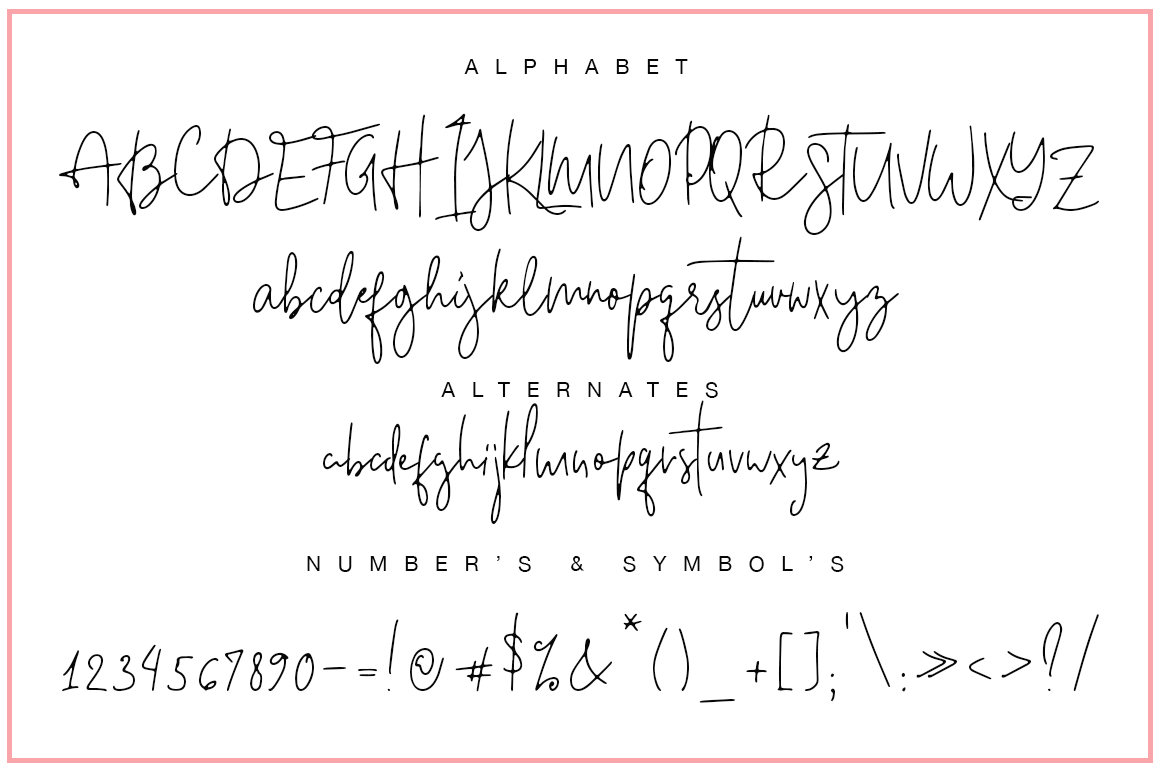 ALPHABET
ABCDEFGHIJKLMNOPQRSTUVWXYZ
abcdefghijklmnopqrstuvwxyz
ALTERNATES
abcdefghijklmnopqrstuvwxyz
NUMBER'S & SYMBOL'S
1234567890-=!@#$%&*()_+[];'\:»<>?/